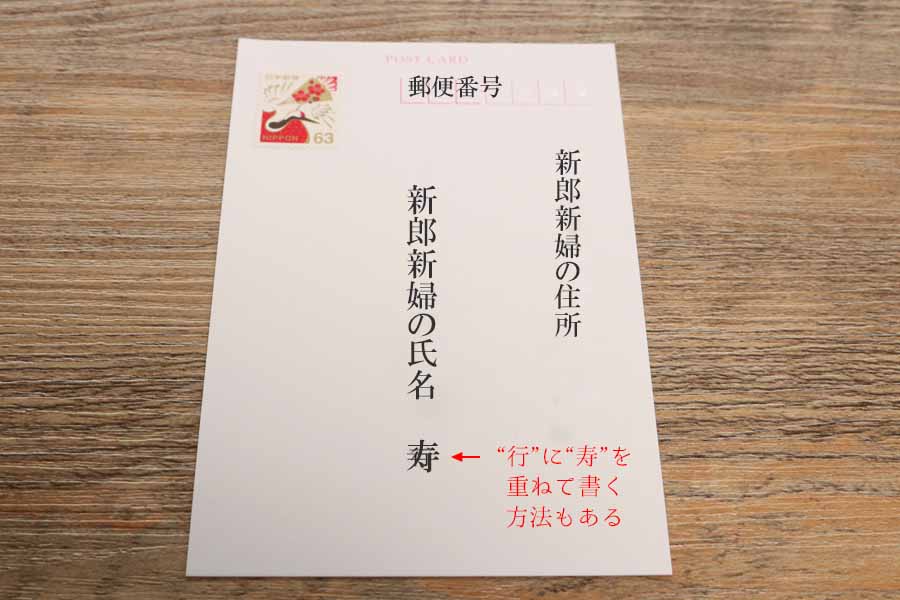 POST CARD
郵便番号
日本郵便
NIPPON 63
新郎新婦の住所
新郎新婦の氏名 寿
“行”に“寿”を
重ねて書く
方法もある